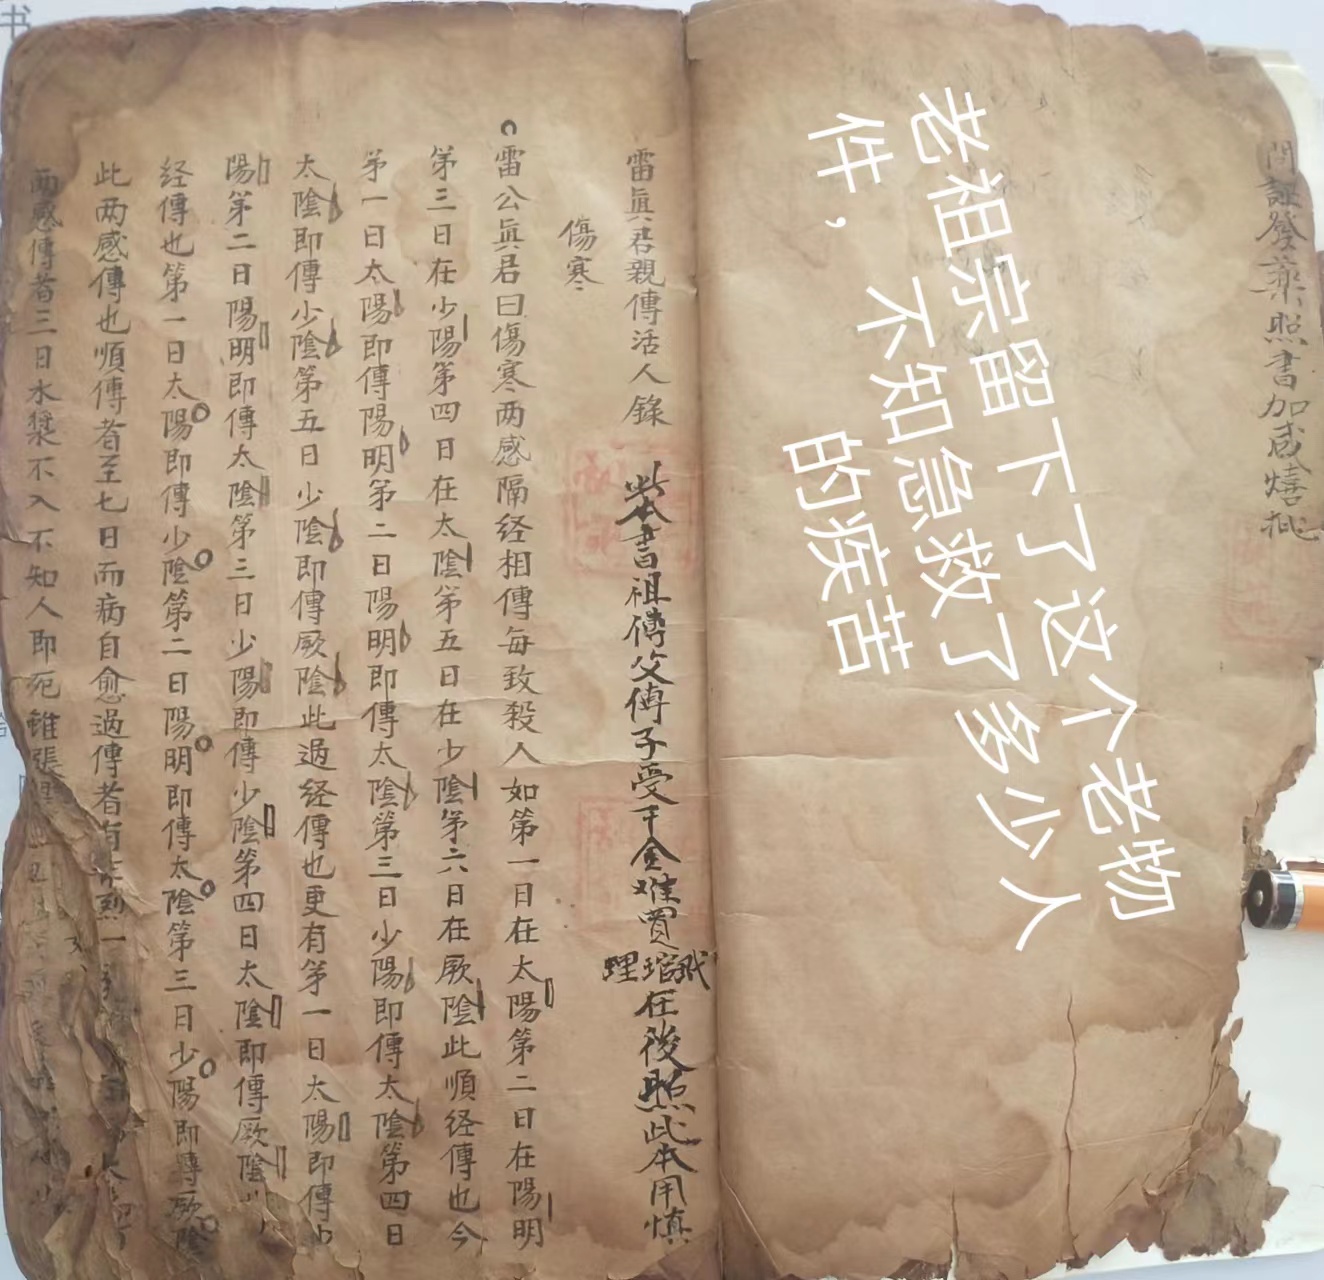 问証發藥照書加减
老祖宗留下了这个老物
件，不知急救了多少人
的疾苦
雷眞君親傳活人錄 此本書祖傳父傳子受千金难買 在後照此本用慎
傷寒
雷公眞君曰傷寒两感隔经相傳每致殺人如第一日在太陽第二日在陽明
第三日在少陽第四日在太陰第五日在少陰第六日在厥陰此順经傳也今
第一日太陽即傳陽明第二日陽明即傳太陰第三日少陽即傳太陰第四日
太陰即傳少陰第五日少陰即傳厥陰此過经傳也更有第一日太陽即傳少
陽第二日陽明即傳太陰第三日少陽即傳少陰第四日太陰即傳厥陰
经傳也第一日太陽即傳少陰第二日陽明即傳太陰第三日少陽即傳厥陰
此两感傳也順傳者至七日而病自愈過傳者有
两感傳者三日水漿不入不知人即死雖張